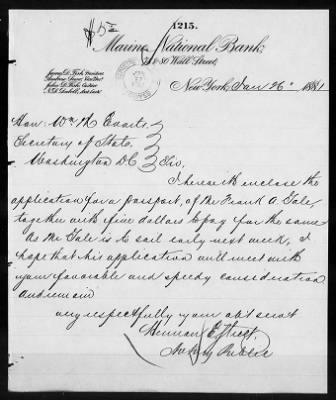 $5
1215.
Marine National Bank,
78 & 80 Wall Street,
James D. Fish, President
John D. Fish, Cashier
New York, Jan 26" 1881
Hon: Wm M Evarts,
Secretary of State,
Washington DC Sir,
I herewith enclose the
application for a passport, of Mr Frank A. Gale,
together with five dollars to pay for the same
As Mr Gale is to sail early next week, I
hope that his application will meet with
your favorable and speedy consideration
and remain
very respectfully your obt servt
Herman E. Street,
Notary Public